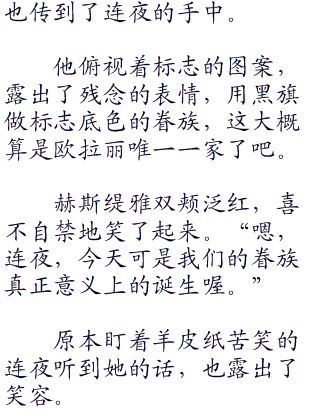 也传到了连夜的手中。
他俯视着标志的图案，
露出了残念的表情，用黑旗
做标志底色的眷族，这大概
算是欧拉丽唯一一家了吧。
赫斯缇雅双颊泛红，喜
不自禁地笑了起来。“嗯，
连夜，今天可是我们的眷族
真正意义上的诞生喔。”
原本盯着羊皮纸苦笑的
连夜听到她的话，也露出了
笑容。